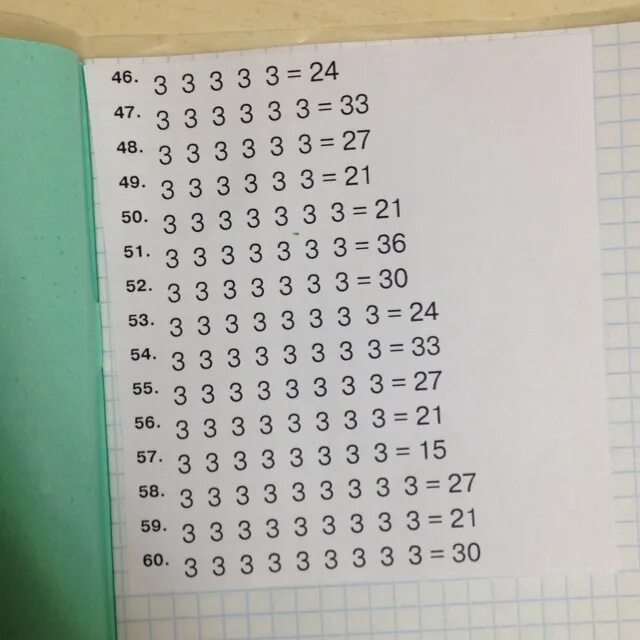 46. 3 3 3 3 3 = 24
47. 3 3 3 3 3 3 = 33
48. 3 3 3 3 3 3 = 27
49. 3 3 3 3 3 3 = 21
50. 3 3 3 3 3 3 3 = 21
51. 3 3 3 3 3 3 3 = 36
52. 3 3 3 3 3 3 3 = 30
53. 3 3 3 3 3 3 3 3 = 24
54. 3 3 3 3 3 3 3 3 = 33
55. 3 3 3 3 3 3 3 3 = 27
56. 3 3 3 3 3 3 3 3 = 21
57. 3 3 3 3 3 3 3 3 = 15
58. 3 3 3 3 3 3 3 3 3 = 27
59. 3 3 3 3 3 3 3 3 3 = 21
60. 3 3 3 3 3 3 3 3 3 = 30